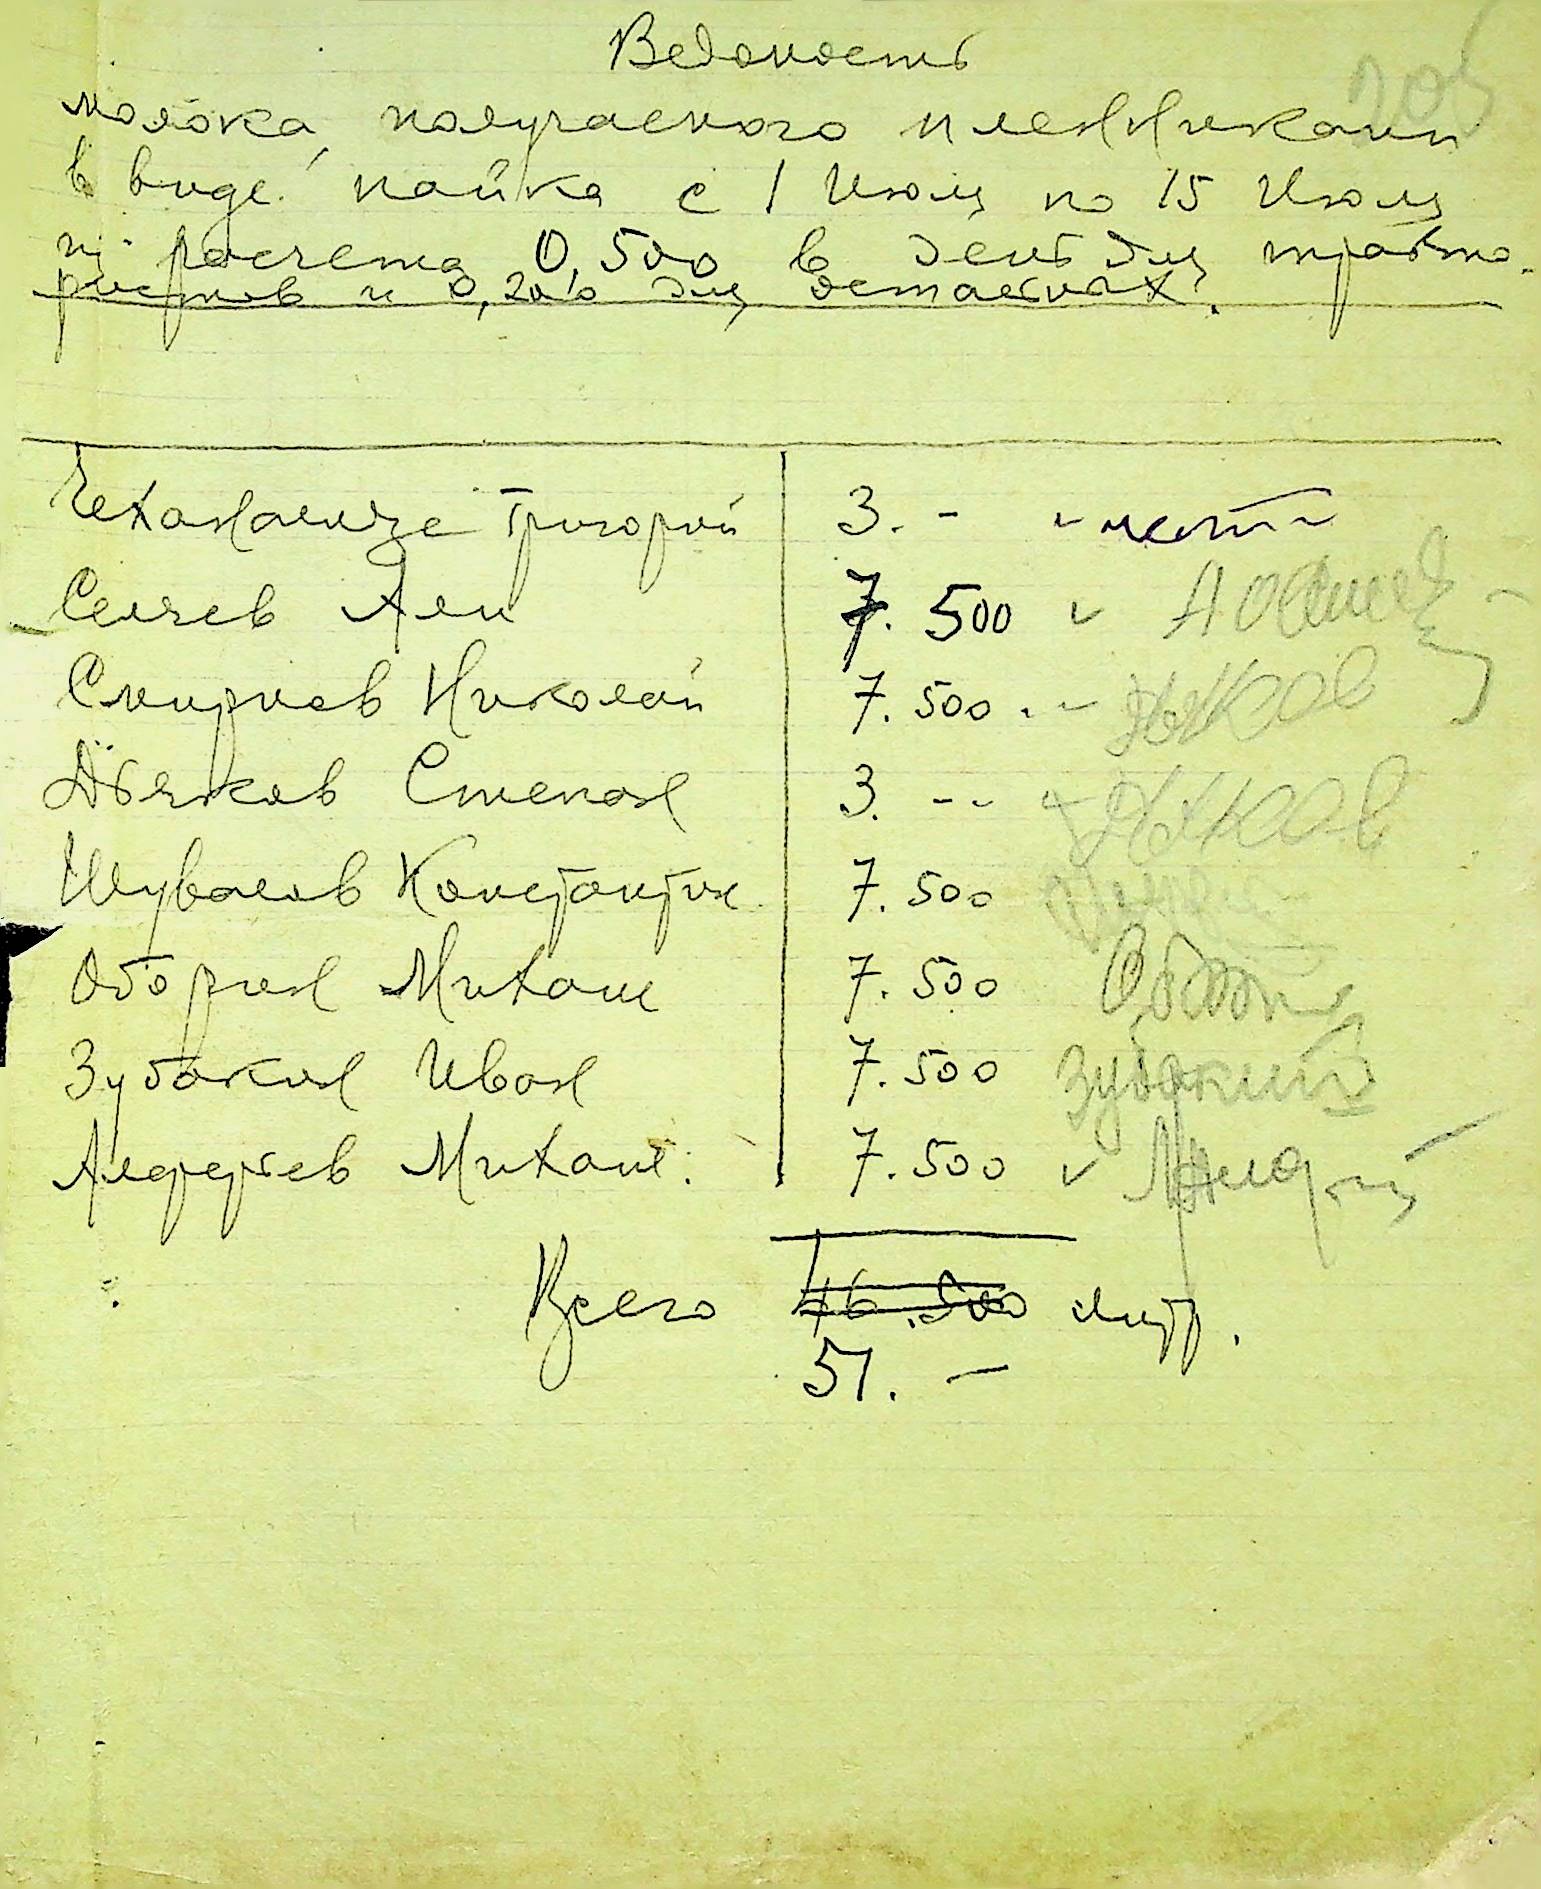 Ведомость
205
молока, получаемого пленниками
в виде пайка с 1 Июля по 15 Июля
из расчета 0,500 в день для тракто-
ристов и 0,200 для остальных.
Григорий 3. -
Селяев Али 7. 500
Смирнов Николай 7. 500
Дьячков Степан 3. - -
Шувалов Константин 7. 500
Оборин Михаил 7. 500
Зубакин Иван 7. 500 Зубакин
Алферьев Михаил. 7. 500
Всего 46.500 литр.
51. -